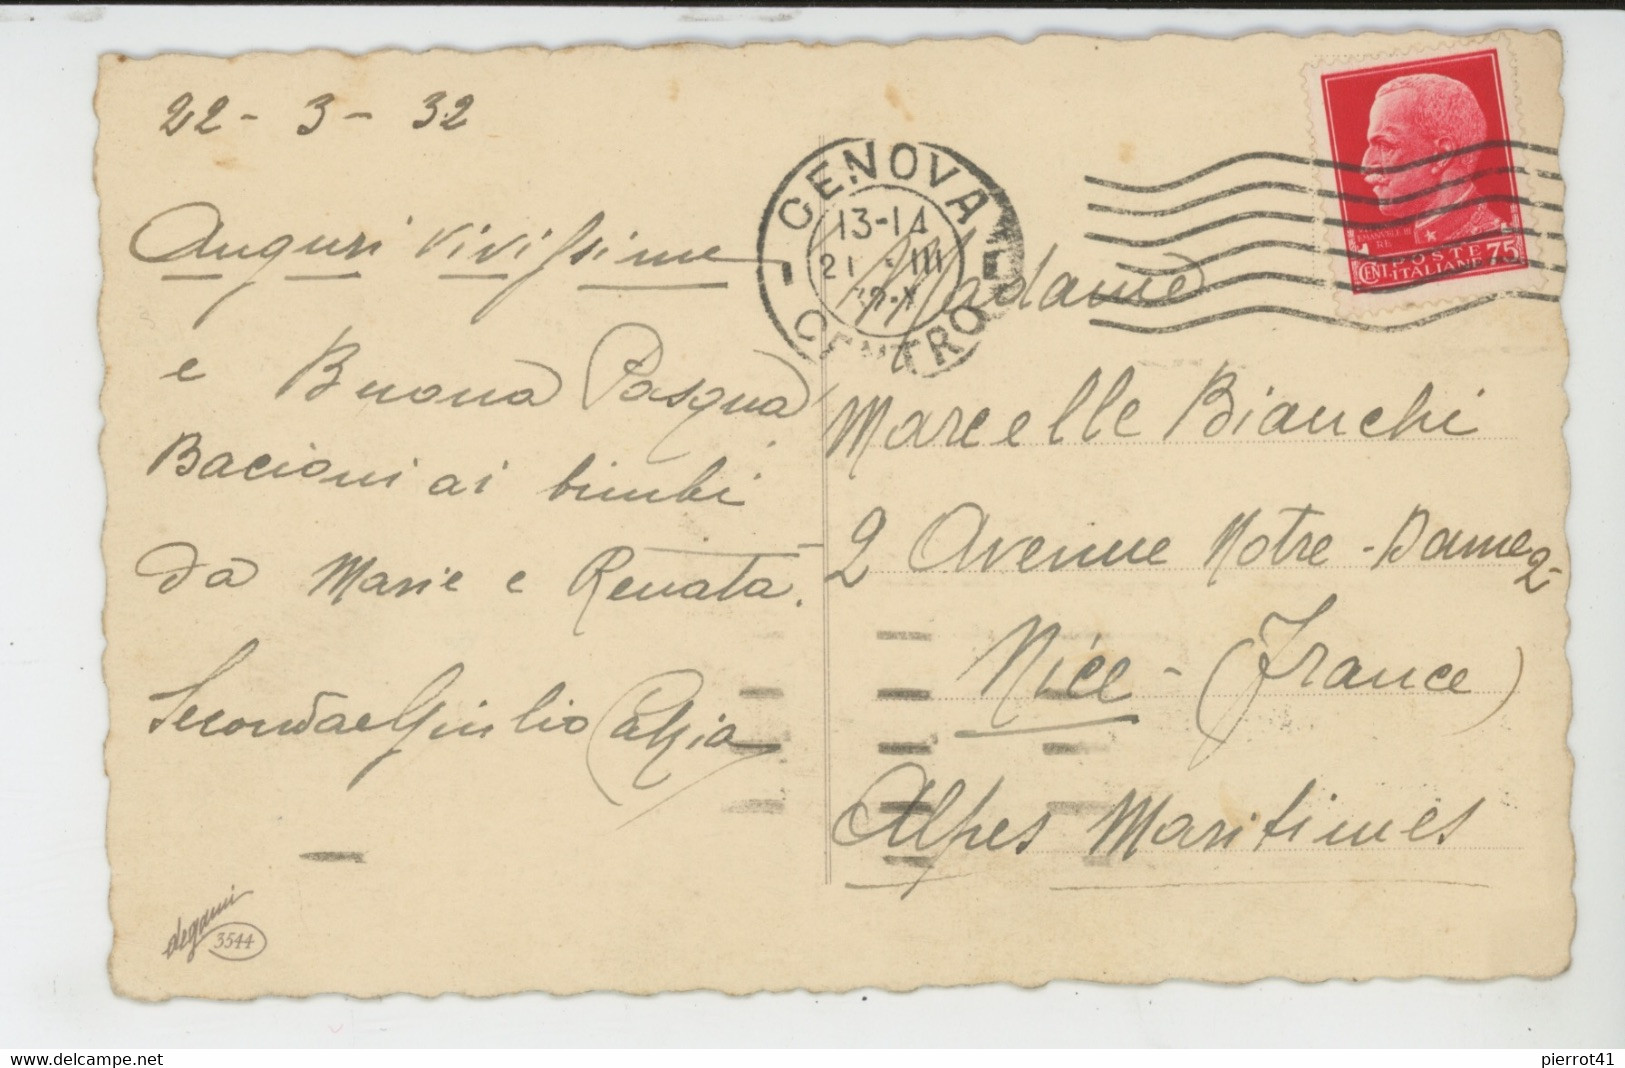 22 - 3 - 32
Auguri vivissime
e Buona Pasqua
Bacioni ai bimbi
da Marie e Renata.
Seconda e Giulio
GENOVA
13-14
21 - III
CENTRO
EMANUELE III
RE
POSTE
CENT. ITALIANE 75
Madame
Marcelle Bianchi
2 Avenue Notre-Dame 2
Nice - (France)
Alpes Maritimes
degami
3544
www.delcampe.net
pierrot41